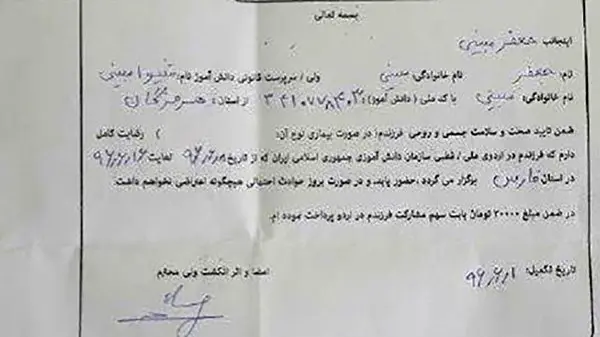 بسمه تعالی
اینجانب جعفر مبینی
نام: جعفر نام خانوادگی: مبینی ولی / سرپرست قانونی دانش آموز نام: شیوا مبینی
نام خانوادگی: مبینی با کد ملی ( دانش آموز): ۳۴۱۰۷۷۸۴۰۳ از استان: هرمزگان
ضمن تایید صحت و سلامت جسمی و روحی فرزندم( در صورت بیماری نوع آن: ) رضایت کامل
دارم که فرزندم در اردوی ملی / قطبی سازمان دانش آموزی جمهوری اسلامی ایران که از تاریخ لغایت ۹۶/۶/۱۶
در استان فارس برگزار می گردد ،حضور یابند و در صورت بروز حوادث احتمالی هیچگونه اعتراضی نخواهم داشت.
در ضمن مبلغ ۲۰۰۰۰ تومان بابت سهم مشارکت فرزندم در اردو پرداخت نموده ام.
تاریخ تکمیل: ۹۶/۶/۱ امضا و اثر انگشت ولی محترم